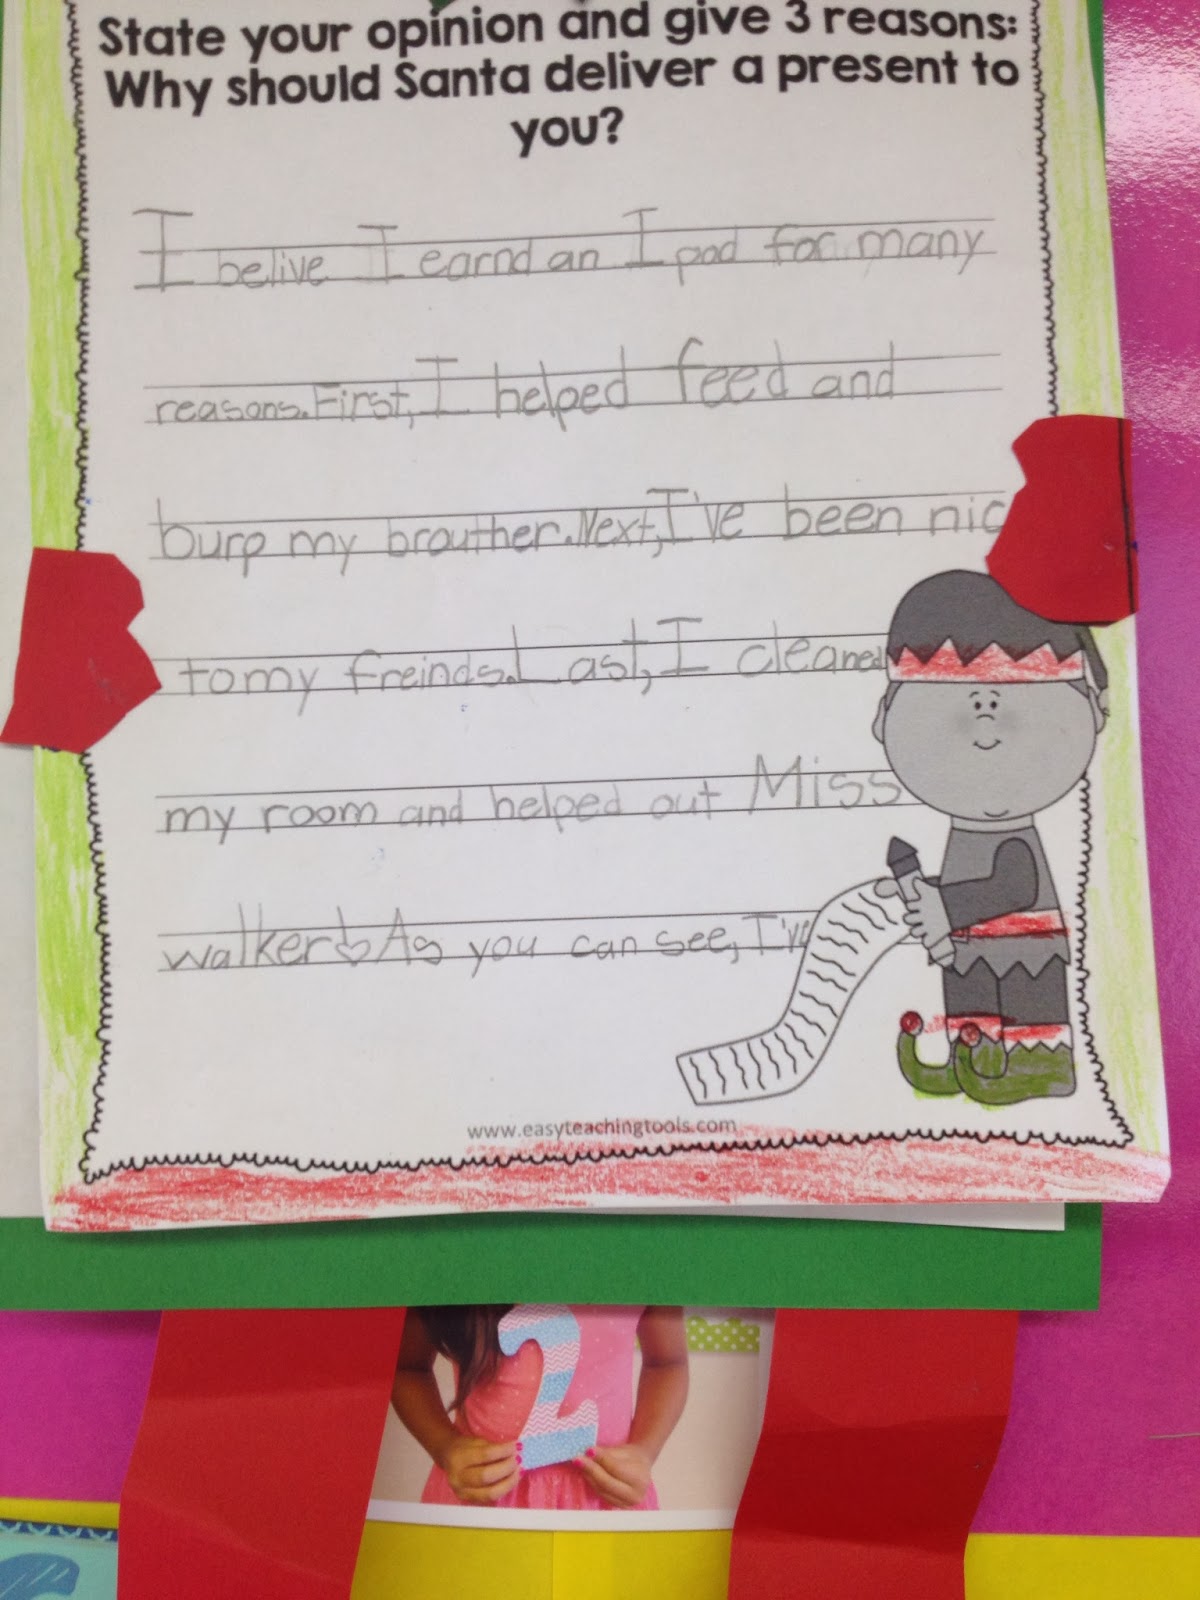 State your opinion and give 3 reasons:
Why should Santa deliver a present to
you?
I belive I earnd an I pod for many
reasons. First, I helped feed and
burp my brouther. Next, I've been nic
to my freinds. Last, I cleaned
my room and helped out Miss
walker♡ As you can see, I've
www.easyteachingtools.com
2